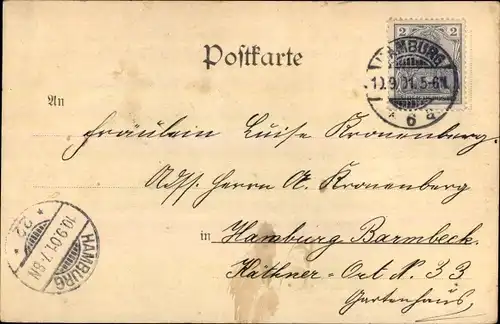 Postkarte
2 2
HAMBURG
10.9.01. 5-6N.
* 6 a
An
Fräulein Luise Kronenberg.
Adr. Herrn A. Kronenberg
in Hamburg Barmbeck.
Käthner-Ort N. 33
Gartenhaus,
* 22 *
10.9.01. 7-8N
HAMBURG